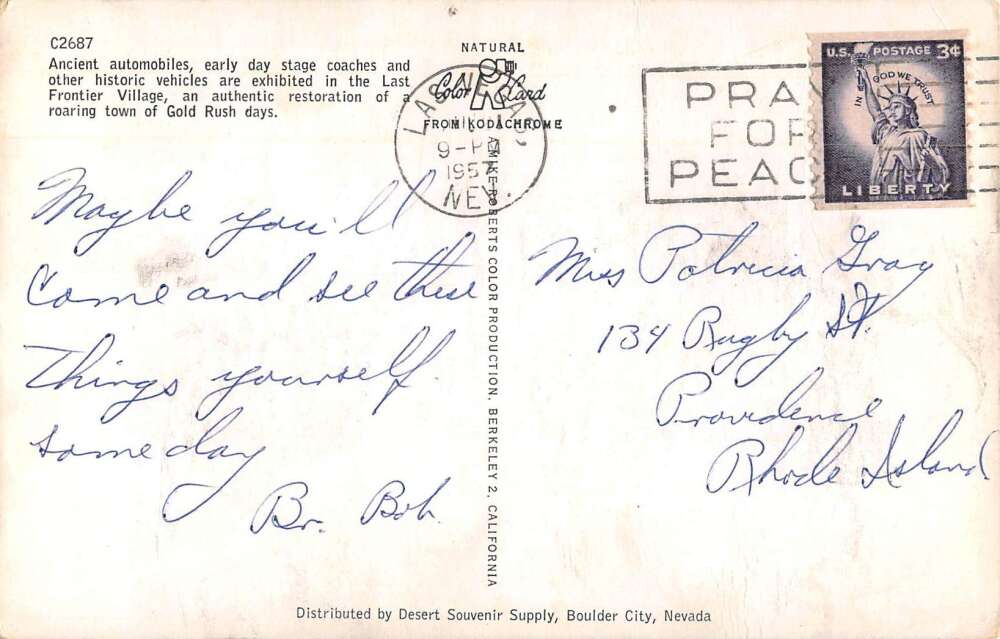 C2687
Ancient automobiles, early day stage coaches and
other historic vehicles are exhibited in the Last
Frontier Village, an authentic restoration of a
roaring town of Gold Rush days.
NATURAL
Color Card
FROM KODACHROME
LAS VEGAS
9-PM
1957
NEV.
PRAY
FOR
PEACE
U.S. POSTAGE 3¢
IN GOD WE TRUST
LIBERTY
Maybe you'll
come and see these
things yourself
some day
Br. Bob
A MIKE ROBERTS COLOR PRODUCTION, BERKELEY 2, CALIFORNIA
Miss Patricia Gray
134 Rugby St.
Providence
Rhode Island
Distributed by Desert Souvenir Supply, Boulder City, Nevada